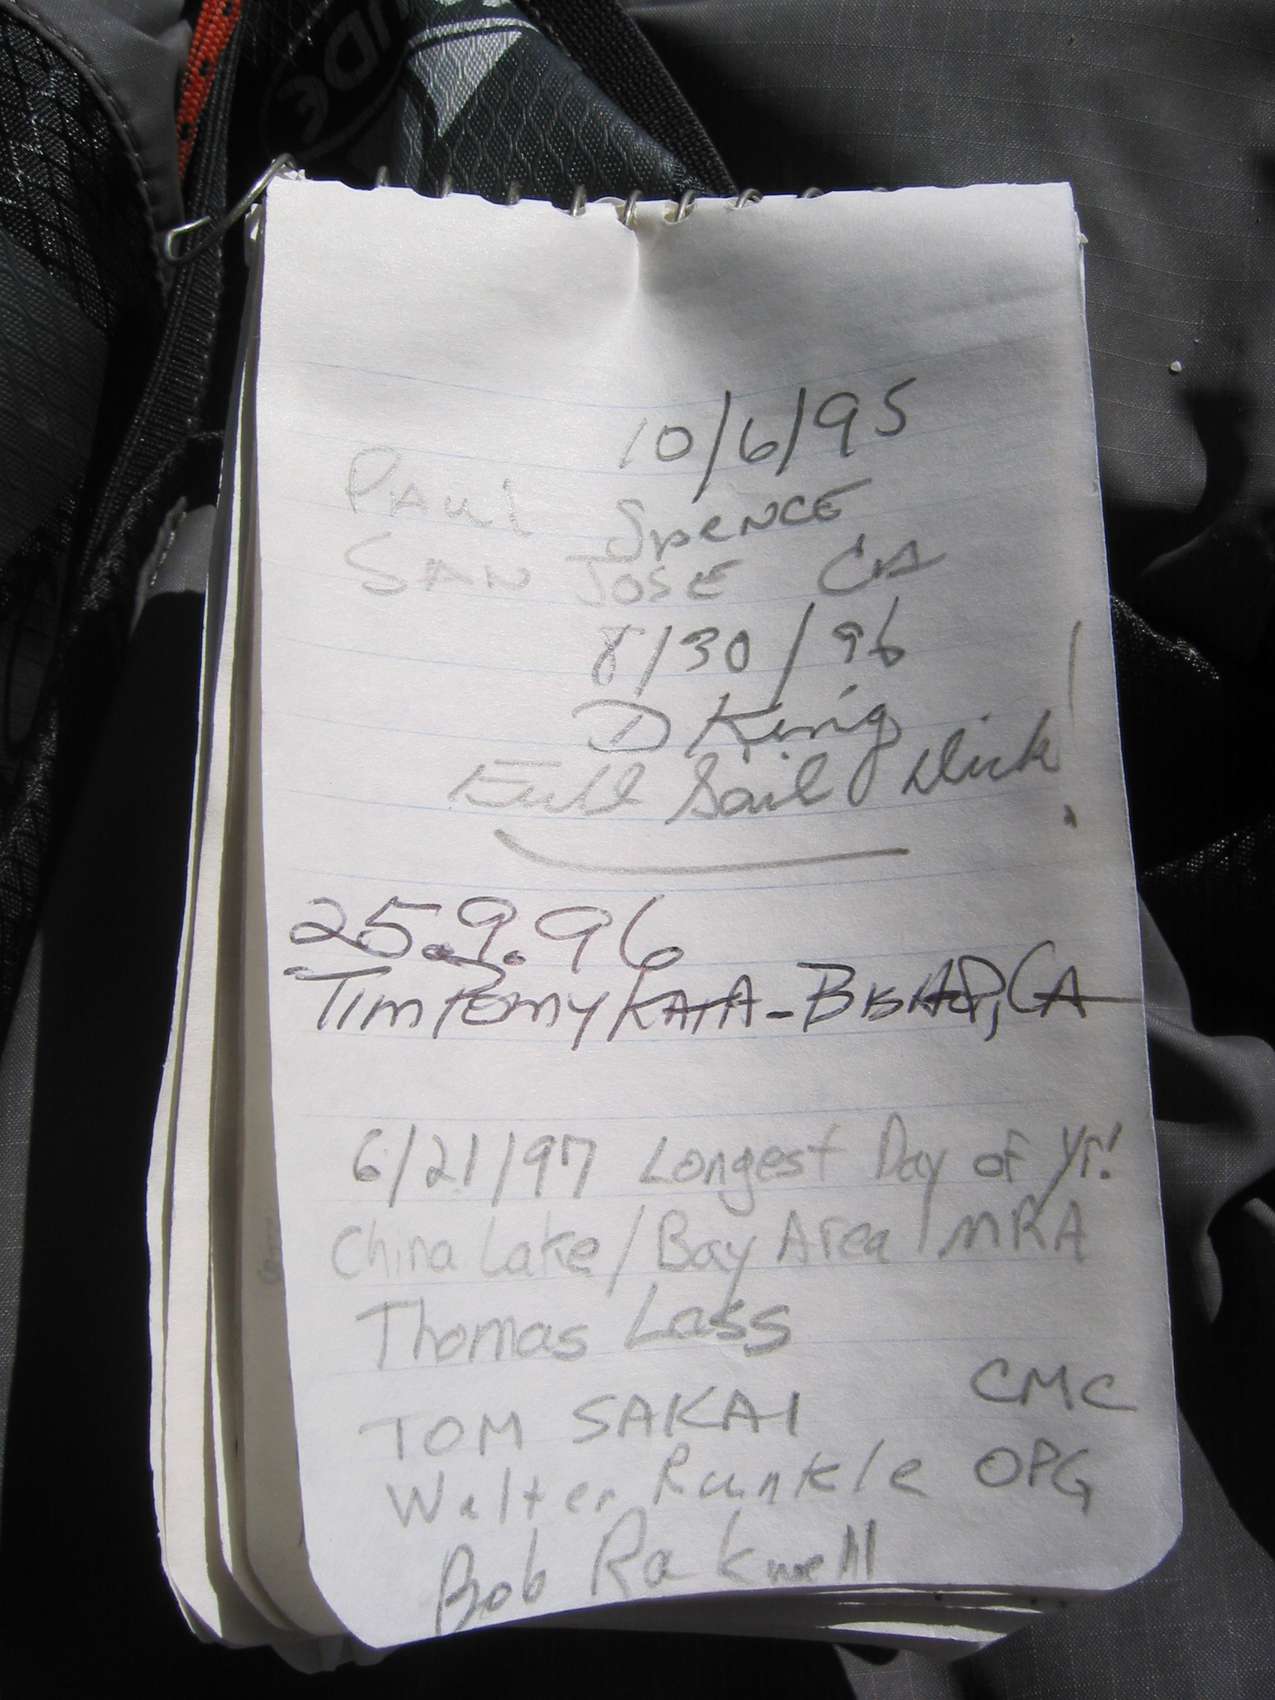 UDE
10/6/95
Paul Spence
San Jose CA
8/30/96
D King
Full Sail Dick!
25.9.96
Tim Pomykata - Bishop, CA
6/21/97 Longest Day of Yr!
China Lake/Bay Area MRA
Thomas Lass
TOM SAKAI CMC
Walter Runkle OPG
Bob Rockwell